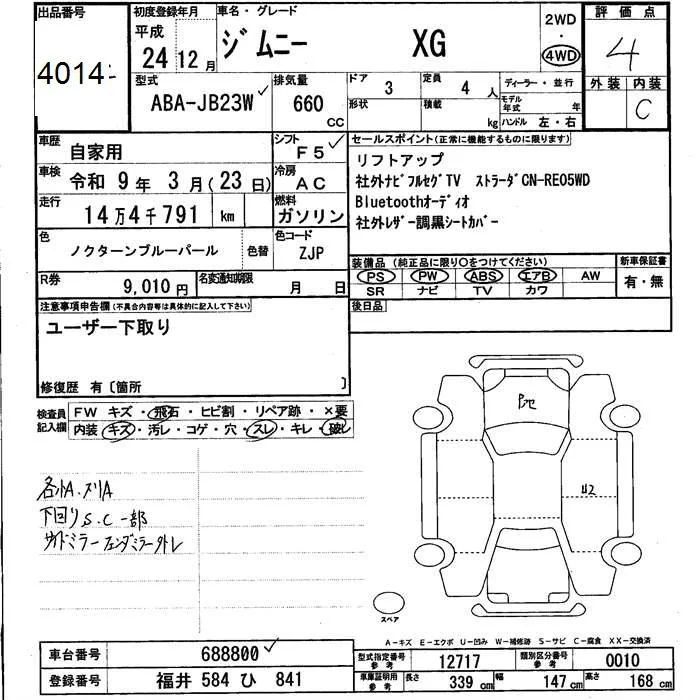 出品番号
4014
初度登録年月
平成
24 12 月
車名・グレード
ジムニー XG
2WD
・
4WD
評価点
4
外装 内装
C
型式
ABA-JB23W
排気量
660
CC
ドア
3
形状
定員
4 人
積載
kg
ディーラー・並行
モデル年式 年
ハンドル 左・右
車歴
自家用
シフト
F5
車検
令和 9 年 3 月 (23 日)
冷房
AC
走行
14万4千791 km
燃料
ガソリン
色
ノクターンブルーパール
色替
色コード
ZJP
R券
9,010 円
名変通知期限
月 日
セールスポイント(正常に機能するものに限ります)
リフトアップ
社外ナビフルセグTV ストラーダCN-RE05WD
Bluetoothオーディオ
社外レザー調黒シートカバー
装備品 (純正品に限り○をつけてください)
PS PW ABS エアB AW
SR ナビ TV カワ
新車保証書
有・無
後日品
注意事項申告欄(不具合内容等は具体的に記入して下さい)
ユーザー下取り
修復歴 有〔箇所 〕
検査員
記入欄
FW キズ・飛石・ヒビ割・リペア跡・×要
内装 キズ・汚レ・コゲ・穴・スレ・キレ・破レ
各小A.スリA
下回りS.C一部
サイドミラーフェンダミラー外レ
U2
スペア
A-キズ E-エクボ U-凹み W-補修跡 S-サビ C-腐食 XX-交換済
車台番号
688800
登録番号
福井 584 ひ 841
型式指定番号
参考
12717
類別区分番号
参考
0010
車庫証明用
参考
長さ
339 cm
幅
147 cm
高さ
168 cm